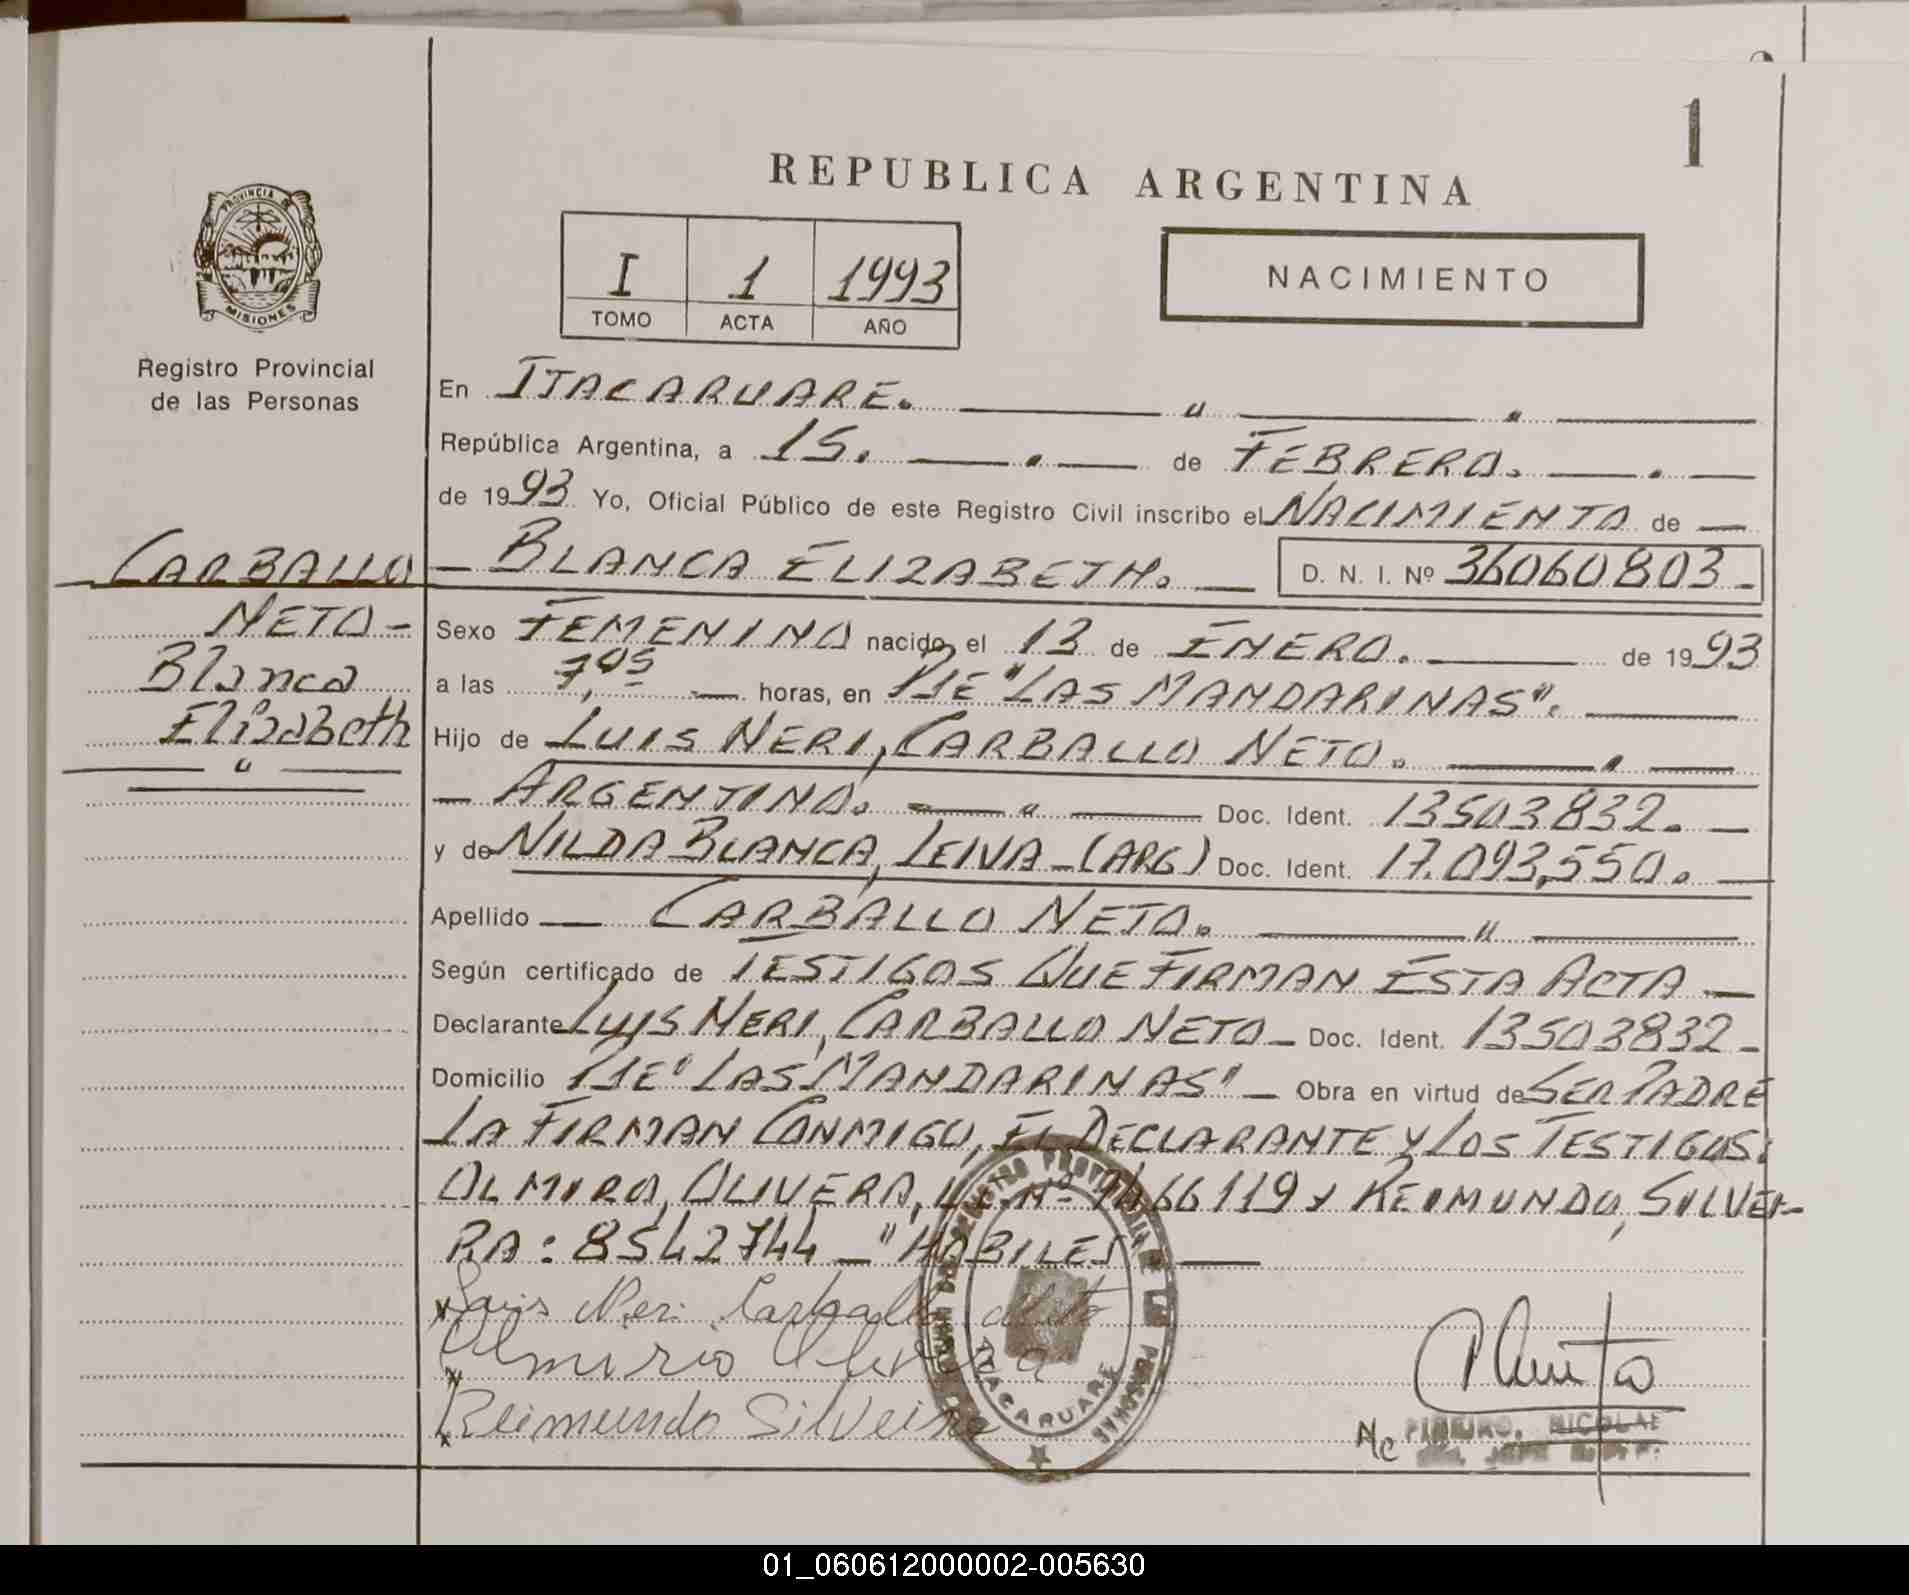 1
REPUBLICA ARGENTINA
PROVINCIA DE
MISIONES
Registro Provincial
de las Personas
I 1 1993
TOMO ACTA AÑO
NACIMIENTO
En ITACARUARE. " "
República Argentina, a 15. de FEBRERO.
de 1993 Yo, Oficial Público de este Registro Civil inscribo el NACIMIENTO de
CARBALLO
NETO-
Blanca
Elizabeth
"
BLANCA ELIZABETH. D. N. I. Nº 36060803-
Sexo FEMENINO nacido el 13 de ENERO. de 1993
a las 7,05 horas, en PJE "LAS MANDARINAS".
Hijo de LUIS NERI, CARBALLO NETO.
ARGENTINO. " Doc. Ident. 13503832.
y de NILDA BLANCA, LEIVA-(ARG) Doc. Ident. 17.093,550.
Apellido CARBALLO NETO. "
Según certificado de TESTIGOS QUE FIRMAN ESTA ACTA
Declarante LUIS NERI, CARBALLO NETO- Doc. Ident. 13503832-
Domicilio PJE "LAS MANDARINAS" - Obra en virtud de SER PADRE
LA FIRMAN CONMIGO, EL DECLARANTE Y LOS TESTIGOS:
OLMIRO, OLIVERA, Nº 7466119 y REIMUNDO, SILVEI-
RA: 8542744 - "HABILES"
Luis Neri Carballo Neto
Olmirio Olivera
Reimundo Silveira
REGISTRO PROVINCIAL DE LAS PERSONAS
ITACARUARE
NICOLAE
01_060612000002-005630